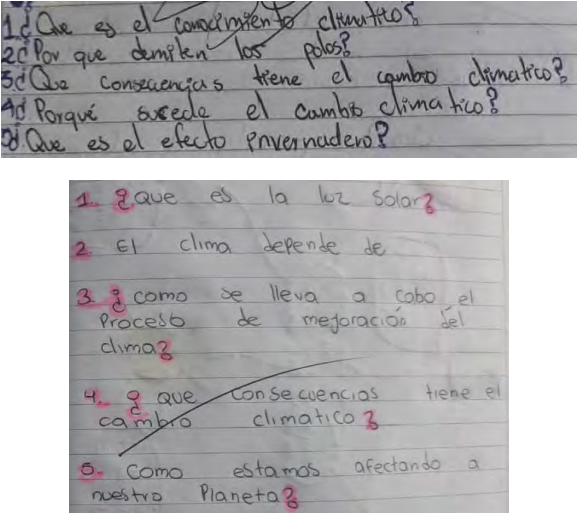 1¿Que es el conocimiento climatico?
2¿Por que demiten los polos?
3¿Que consecuencias tiene el cambio climatico?
4¿Porqué sucede el cambio climatico?
5¿Que es el efecto invernadero?
1. ¿que es la luz solar?
2 El clima depende de
3. ¿como se lleva a cobo el
Proceso de mejoración del
clima?
4. ¿que consecuencias tiene el
cambio climatico?
5. como estamos afectando a
nuestro Planeta?